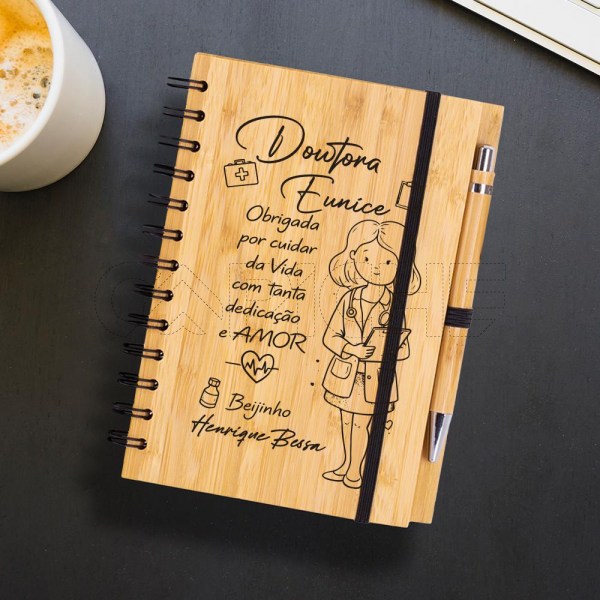 Doutora
Eunice
Obrigada
por cuidar
da Vida
com tanta
dedicação
e AMOR
Beijinho
Henrique Bessa